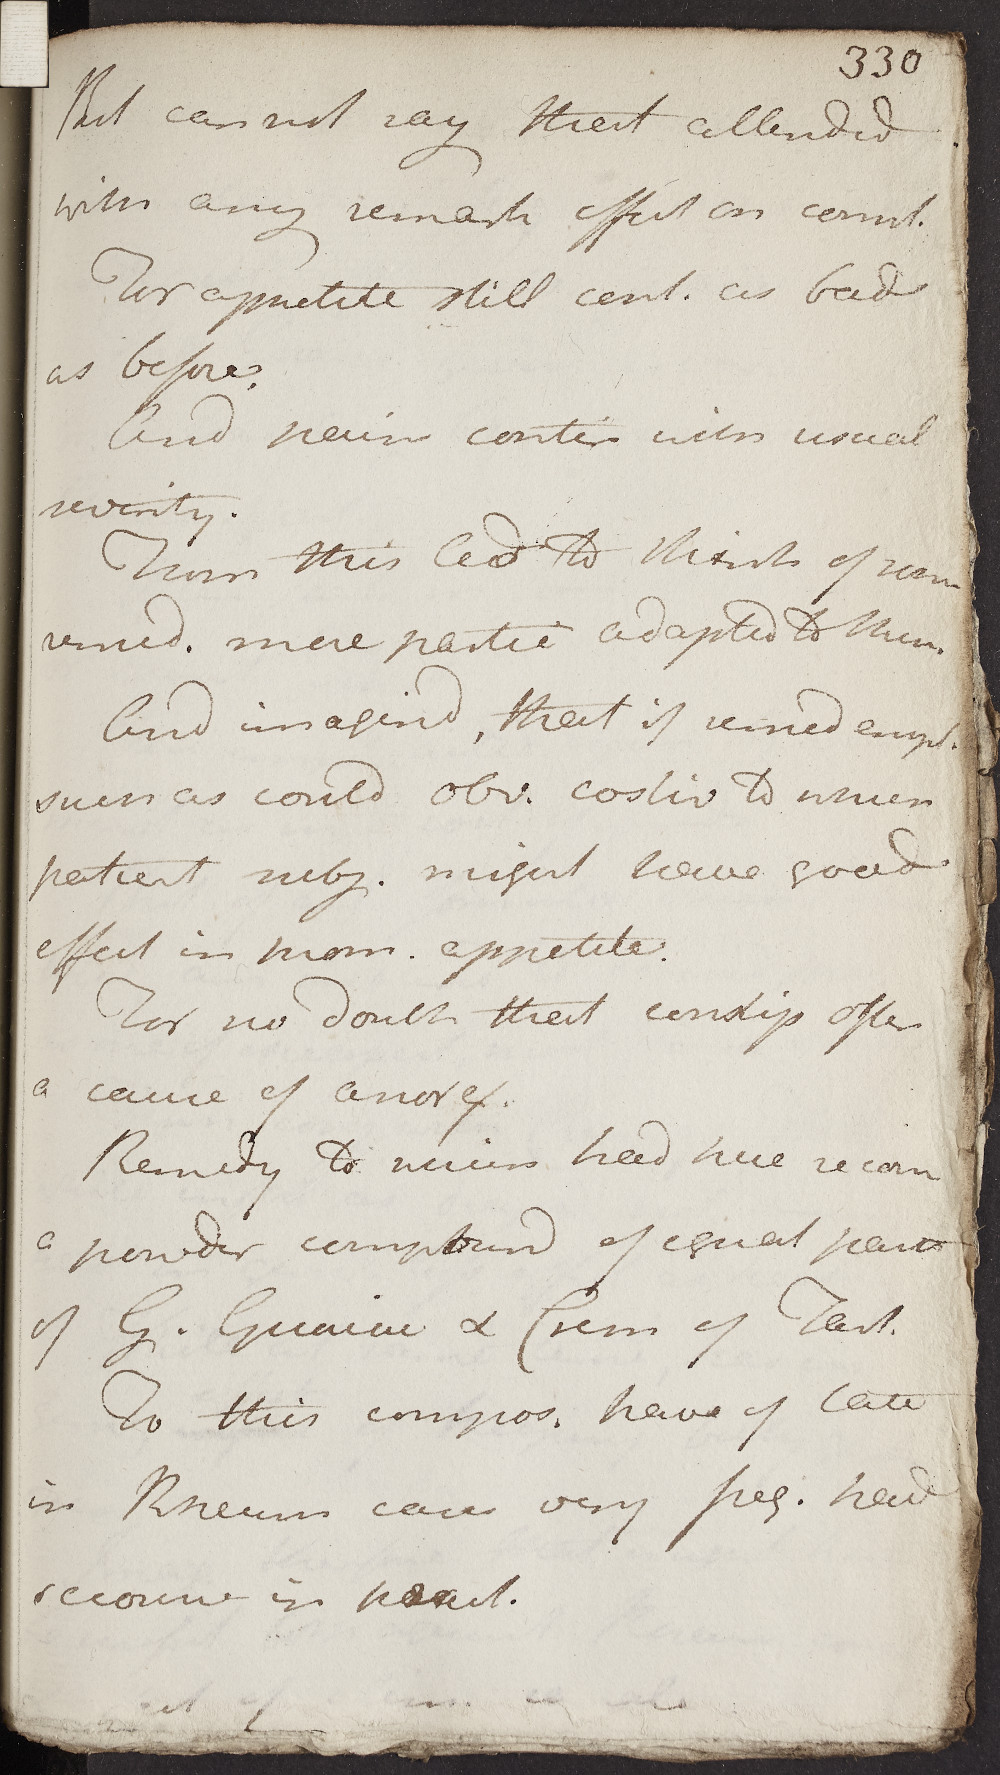 330
But cannot say that attended
with any remark effect on const.
For appetite still cont. as bad
as before.
And pain contin with usual
severity.
From this led to think of som
remed. more partic adapted to them.
And imagind, that if remed empl.
such as could obv. costiv to which
patient subj. might have good
effect in prom. appetite.
For no doubt that constip often
a cause of anorex.
Remedy to which had here recom
a powder compound of equal parts
of G. Guaiac & Crem of Tart.
To this compos. have of late
in Rheum cases very freq. had
recourse in pract.